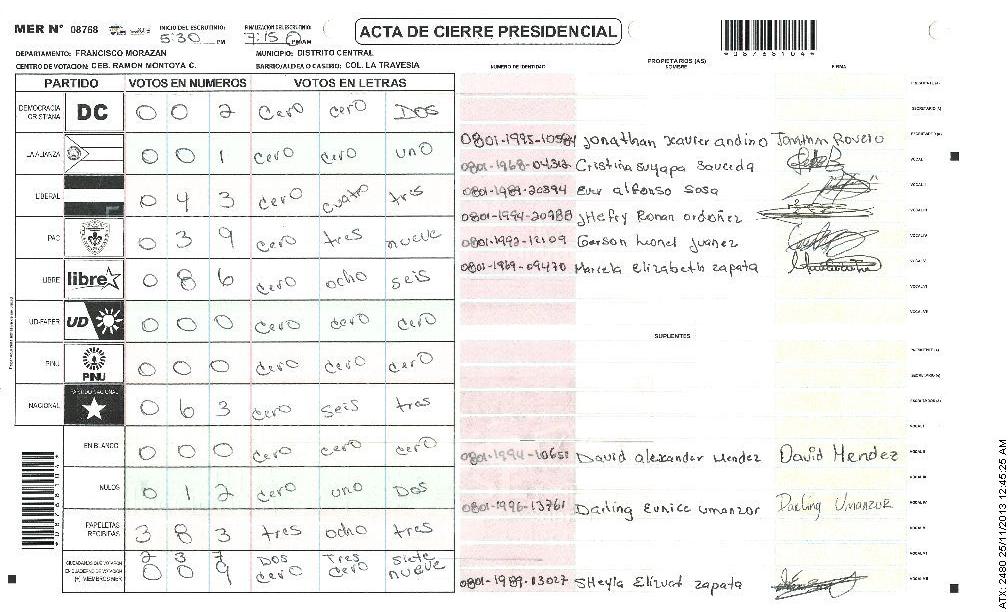 MER N° 08768 INICIO DEL ESCRUTINIO: 5:30 PM FINALIZACION DEL ESCRUTINIO: 7:15 PM/AM ACTA DE CIERRE PRESIDENCIAL
DEPARTAMENTO: FRANCISCO MORAZAN MUNICIPIO: DISTRITO CENTRAL
CENTRO DE VOTACION: CEB. RAMON MONTOYA C. BARRIO/ALDEA O CASERIO: COL. LA TRAVESIA
PARTIDO VOTOS EN NUMEROS VOTOS EN LETRAS
DEMOCRACIA CRISTIANA DC 0 0 2 cero cero Dos
LA ALIANZA 0 0 1 cero cero uno
LIBERAL 0 4 3 cero cuatro tres
PAC 0 3 9 cero tres nueve
LIBRE libre 0 8 6 cero ocho seis
UD-FAPER UD 0 0 0 cero cero cero
PINU PINU 0 0 0 cero cero cero
NACIONAL PARTIDO NACIONAL 0 6 3 cero seis tres
EN BLANCO 0 0 0 cero cero cero
NULOS 0 1 2 cero uno Dos
PAPELETAS RECIBIDAS 3 8 3 tres ocho tres
CIUDADANOS QUE VOTARON EN CUADERNO DE VOTACION 2 3 7 Dos Tres Siete
(+) MIEMBROS MER 0 0 9 cero cero nueve
PROPIETARIOS (AS)
NUMERO DE IDENTIDAD NOMBRE FIRMA
PRESIDENTE (A)
SECRETARIO (A)
0801-1995-10584 Jonathan Xavier andino Jonathan Rovelo
0801-1968-04312 Cristina suyapa Sauceda VOCAL I
0801-1989-20894 Ever alfonso Sosa VOCAL II
0801-1994-20988 JHefry Ronan ordoñez VOCAL III
0801-1992-12109 Gerson Lionel Juanez VOCAL IV
0801-1969-09470 Marcela Elizabeth zapata VOCAL V
VOCAL VI
VOCAL VII
SUPLENTES
PRESIDENTE (A)
SECRETARIO (A)
ESCRUTADOR (A)
VOCAL I
David alexander Mendez David Mendez VOCAL II
VOCAL III
0801-1996-13761 Darling Eunice umanzor Darling Umanzor VOCAL IV
VOCAL V
VOCAL VI
0801-1989-13027 SHeyla zapata VOCAL VII
ATX: 2480 25/11/2013 12:45:25 AM